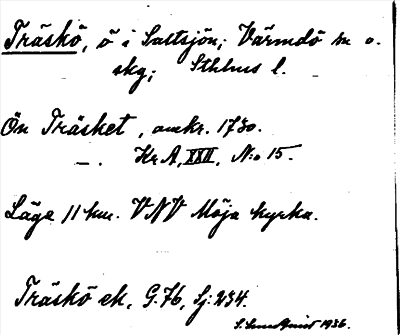 Träskö, ö i Saltsjön; Värmdö sn o.
skg; Sthlms l.
Ön Träsket, omkr. 1730.
—. Kr A, XXII, N:o 15.
Läge 11 km. VNV Möja kyrka.
Träskö ek, G.76, Sj:234.
1936.